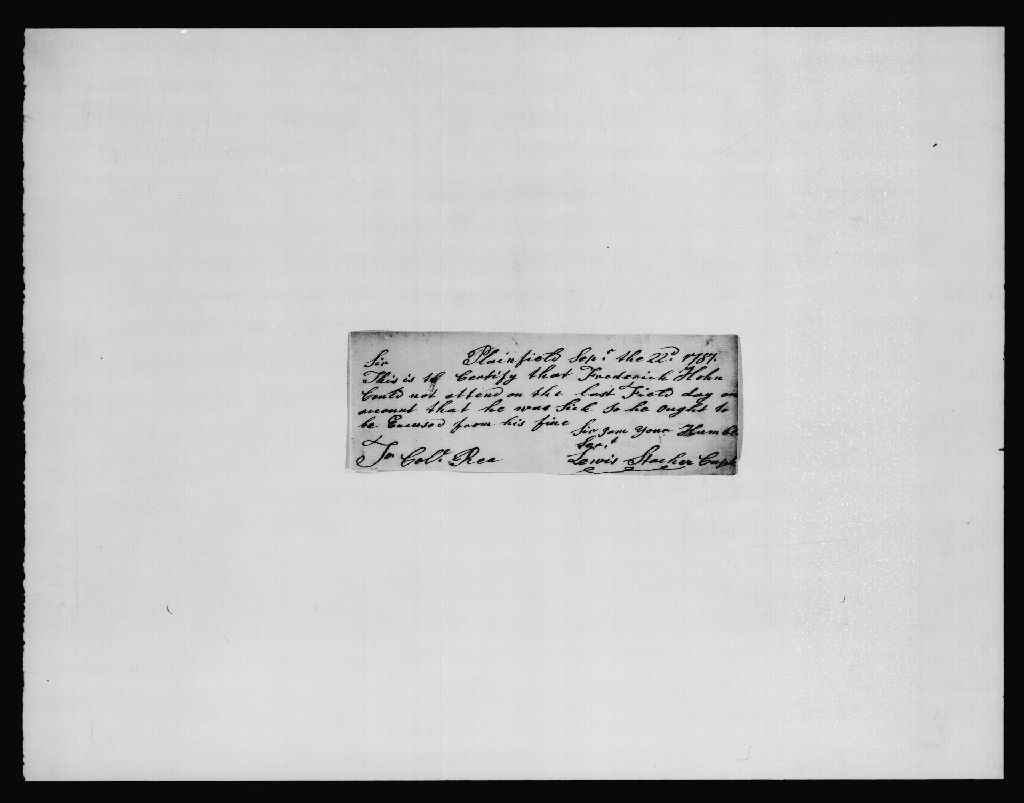 Plainfield Sepr. the 22d. 1787.
Sir
This is to Certify that Frederick Hohn
Could not attend on the last Field day on
account that he was Sick So he ought to
be Excused from his fine
Sir I am your Humble
Ser.t
To Col.l Rea
Lewis Stecher Capt